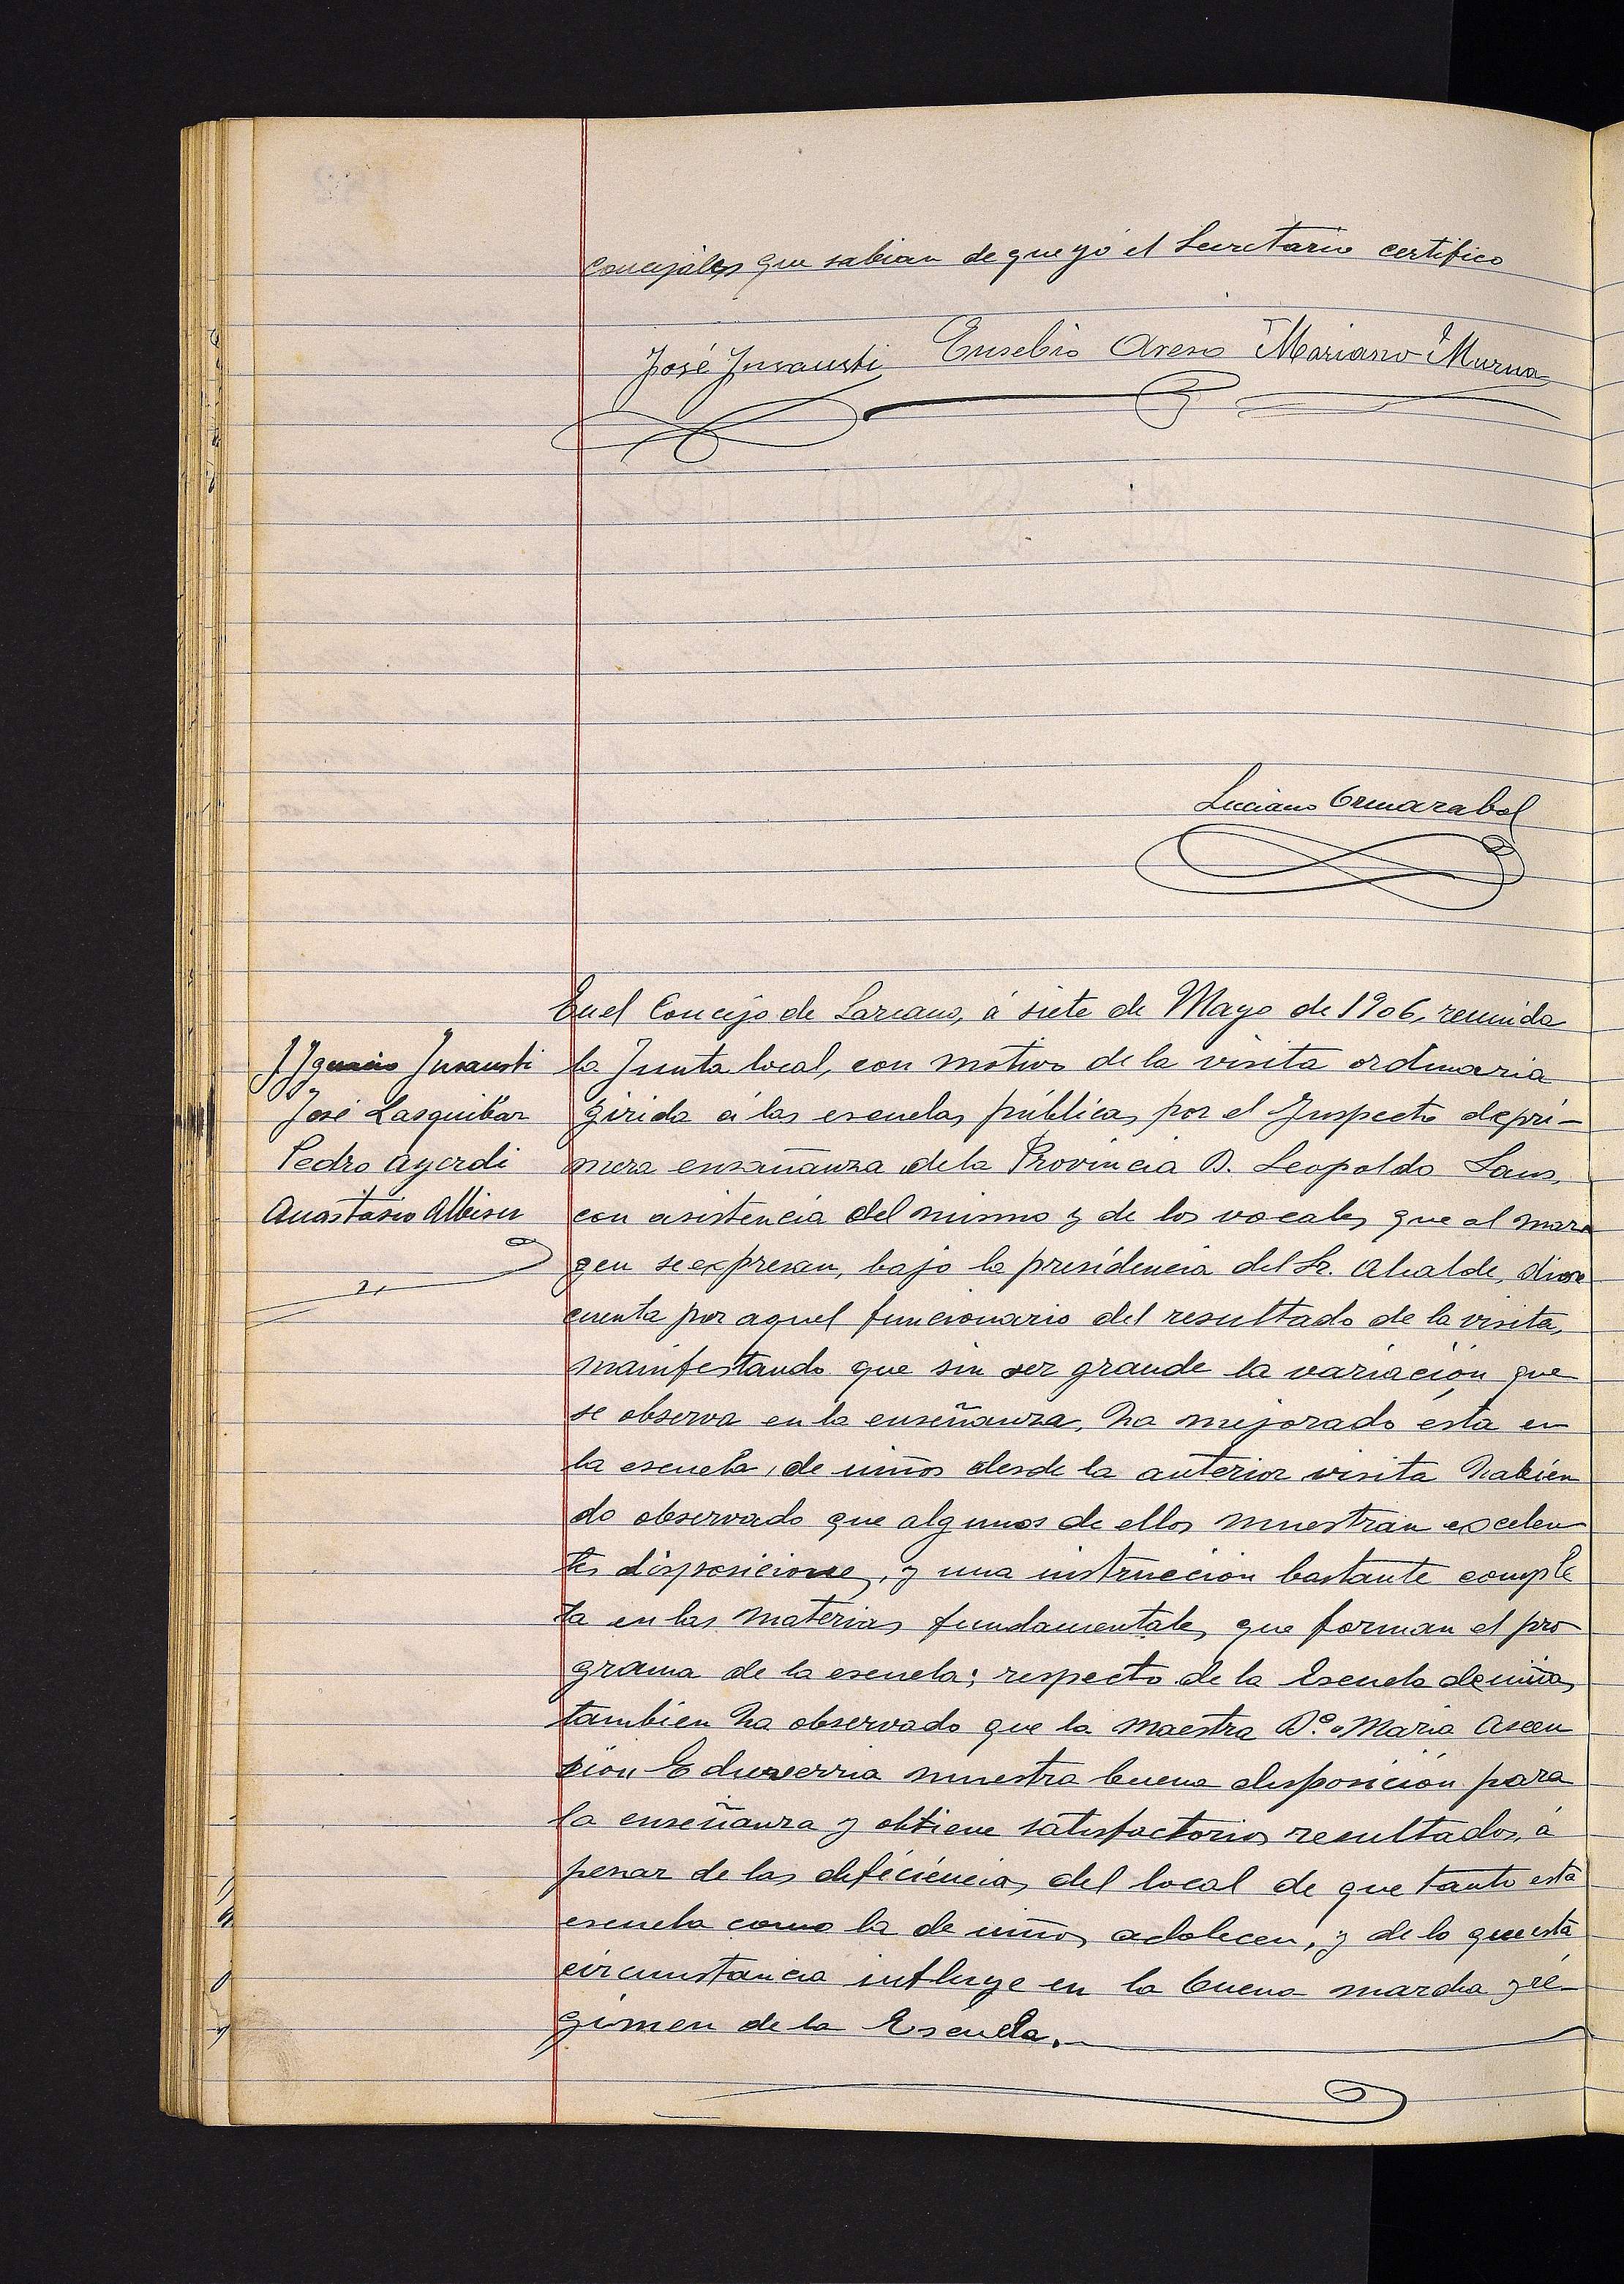 concejales que sabian de que yó el Secretario certifico
José Insausti Eusebio Areso Mariano Murua
Luciano Ormazabal
En el Concejo de Lazcano, á siete de Mayo de 1906, reunida
J Ignacio Insausti
José Lasquibar
Pedro Ayerdi
Anastasio Albisu
la Junta local, con motivo de la visita ordinaria
girida á las escuelas públicas por el Inspector de pri-
mera ensañanza de la Provincia D. Leopoldo Sans,
con asistencia del mismo y de los vocales que al mar
gen se expresan, bajo la presidencia del Sr. Alcalde, diose
cuenta por aquel funcionario del resultado de la visita,
manifestando que sin ser grande la variación que
se observa en la enseñanza, ha mejorado esta en
la escuela de niños desde la anterior visita habien
do observado que algunos de ellos muestran excelen
tes disposiciones, y una instruccion bastante comple
ta en las materias fundamentales que forman el pro
grama de la escuela; respecto de la Escuela de niñas
tambien ha observado que la maestra Dª Maria Ascen
sion Echeverria muestra buena disposición para
la enseñanza y obtiene satisfactorios resultados, á
pesar de las deficiencias del local de que tanto esta
escuela como la de niños adolecen, y de lo que esta
circunstancia influye en la buena marcha y ré-
gimen de la Escuela.